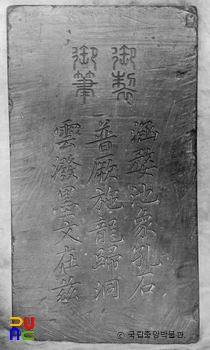 御製
御筆
涵嫛池象孔石
普厥施龍歸洞
雲潑墨文在玆
© 국립중앙박물관